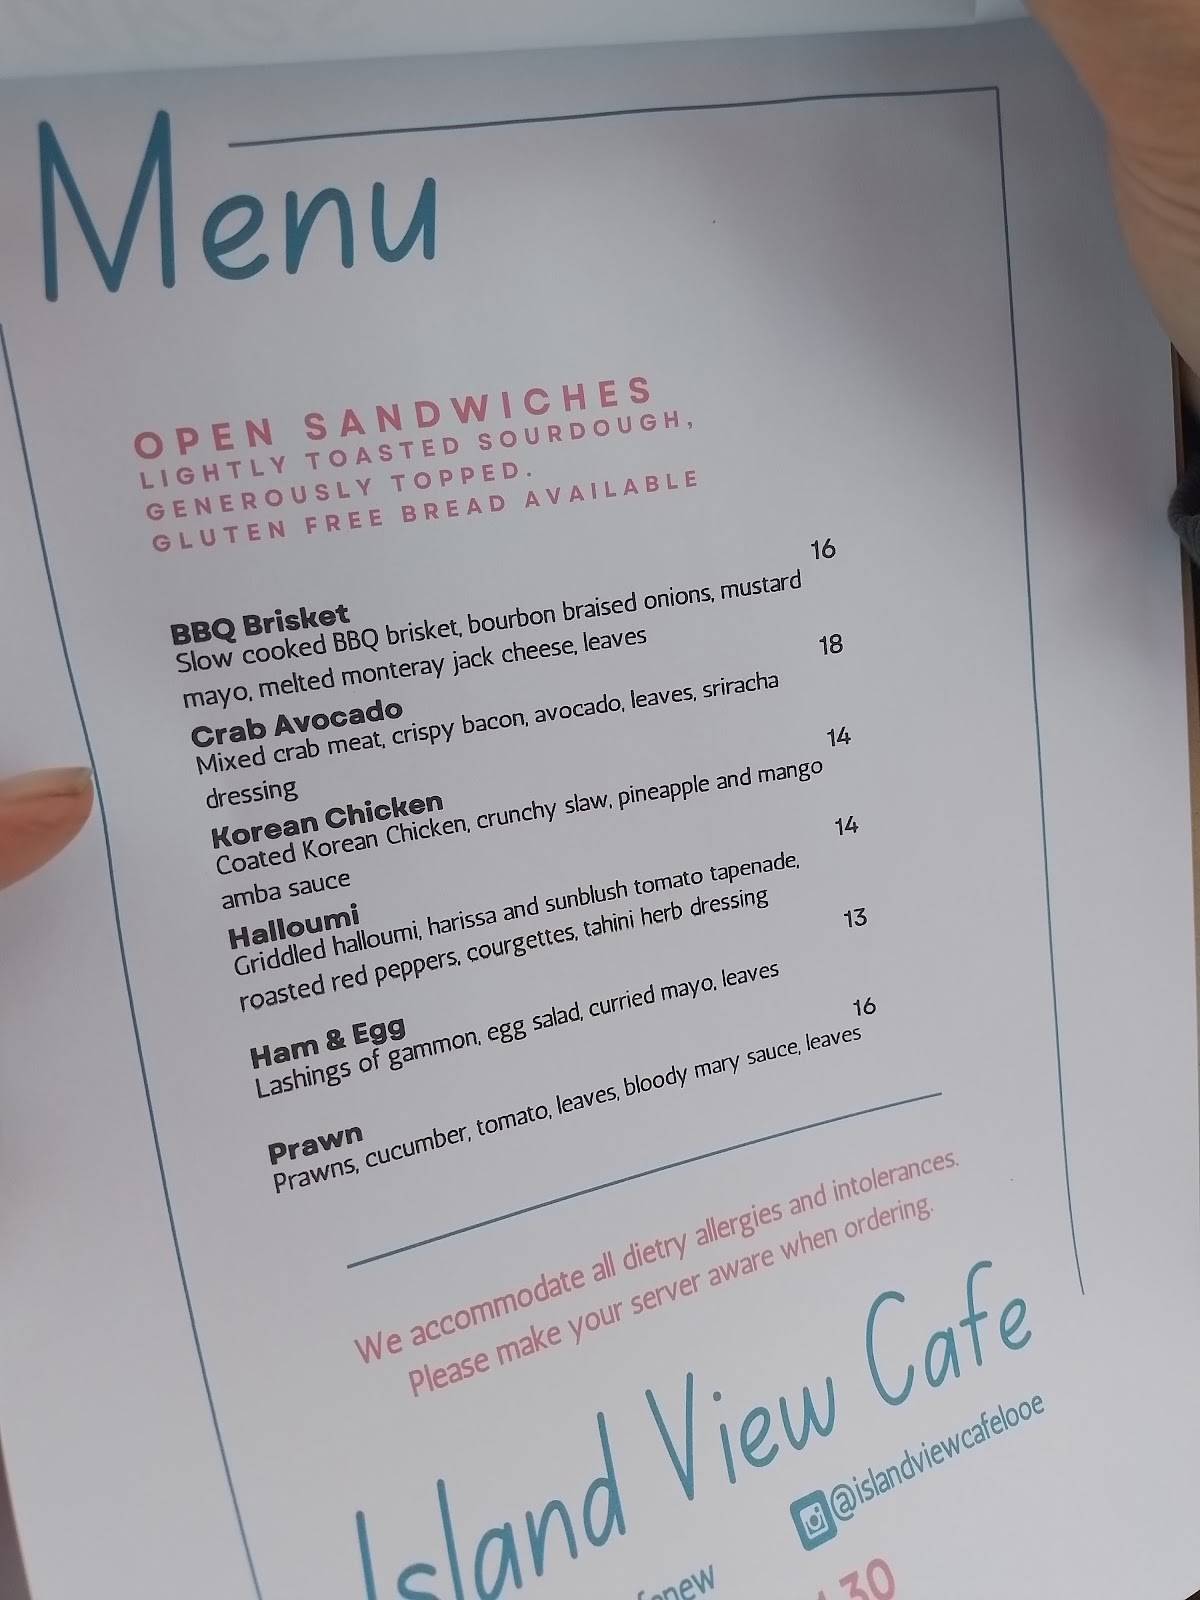 Menu
OPEN SANDWICHES
LIGHTLY TOASTED SOURDOUGH,
GENEROUSLY TOPPED.
GLUTEN FREE BREAD AVAILABLE
16
BBQ Brisket
Slow cooked BBQ brisket, bourbon braised onions, mustard
mayo, melted monteray jack cheese, leaves
18
Crab Avocado
Mixed crab meat, crispy bacon, avocado, leaves, sriracha
dressing
14
Korean Chicken
Coated Korean Chicken, crunchy slaw, pineapple and mango
amba sauce
14
Halloumi
Griddled halloumi, harissa and sunblush tomato tapenade,
roasted red peppers, courgettes, tahini herb dressing
13
Ham & Egg
Lashings of gammon, egg salad, curried mayo, leaves
16
Prawn
Prawns, cucumber, tomato, leaves, bloody mary sauce, leaves
We accommodate all dietry allergies and intolerances.
Please make your server aware when ordering.
Island View Cafe
@islandviewcafelooe
30